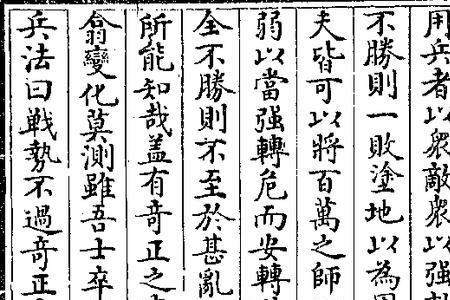 用兵者以衆敵衆以强
不勝則一敗塗地以為
夫皆可以將百萬之師
弱以當强轉危而安轉
全不勝則不至於甚亂
所能知哉盖有竒正之
翕變化莫測雖吾士卒
兵法曰戦勢不過竒正